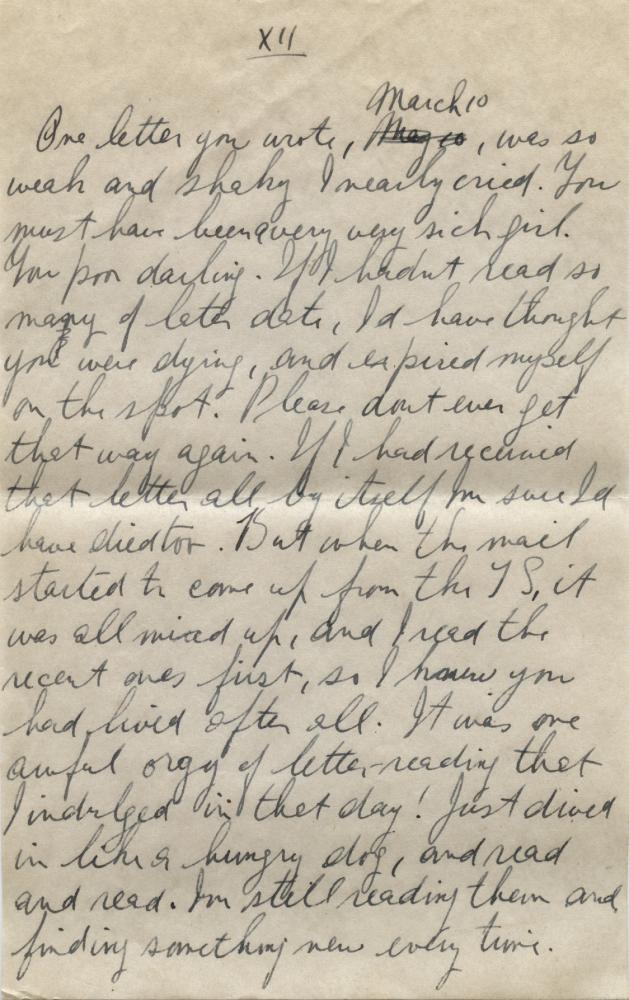 XII
March 10
One letter you wrote, May 10, was so
weak and shaky I nearly cried. You
must have been a very very sick girl.
You poor darling. If I hadnt read so
many of later date, Id have thought
you were dying, and expired myself
on the spot. Please dont ever get
that way again. If I had received
that letter all by itself Im sure Id
have died too. But when the mail
started to come up from the TS, it
was all mixed up, and I read the
recent ones first, so I knew you
had lived after all. It was one
awful orgy of letter-reading that
I indulged in that day! Just dived
in like a hungry dog, and read
and read. Im still reading them and
finding something new every time.